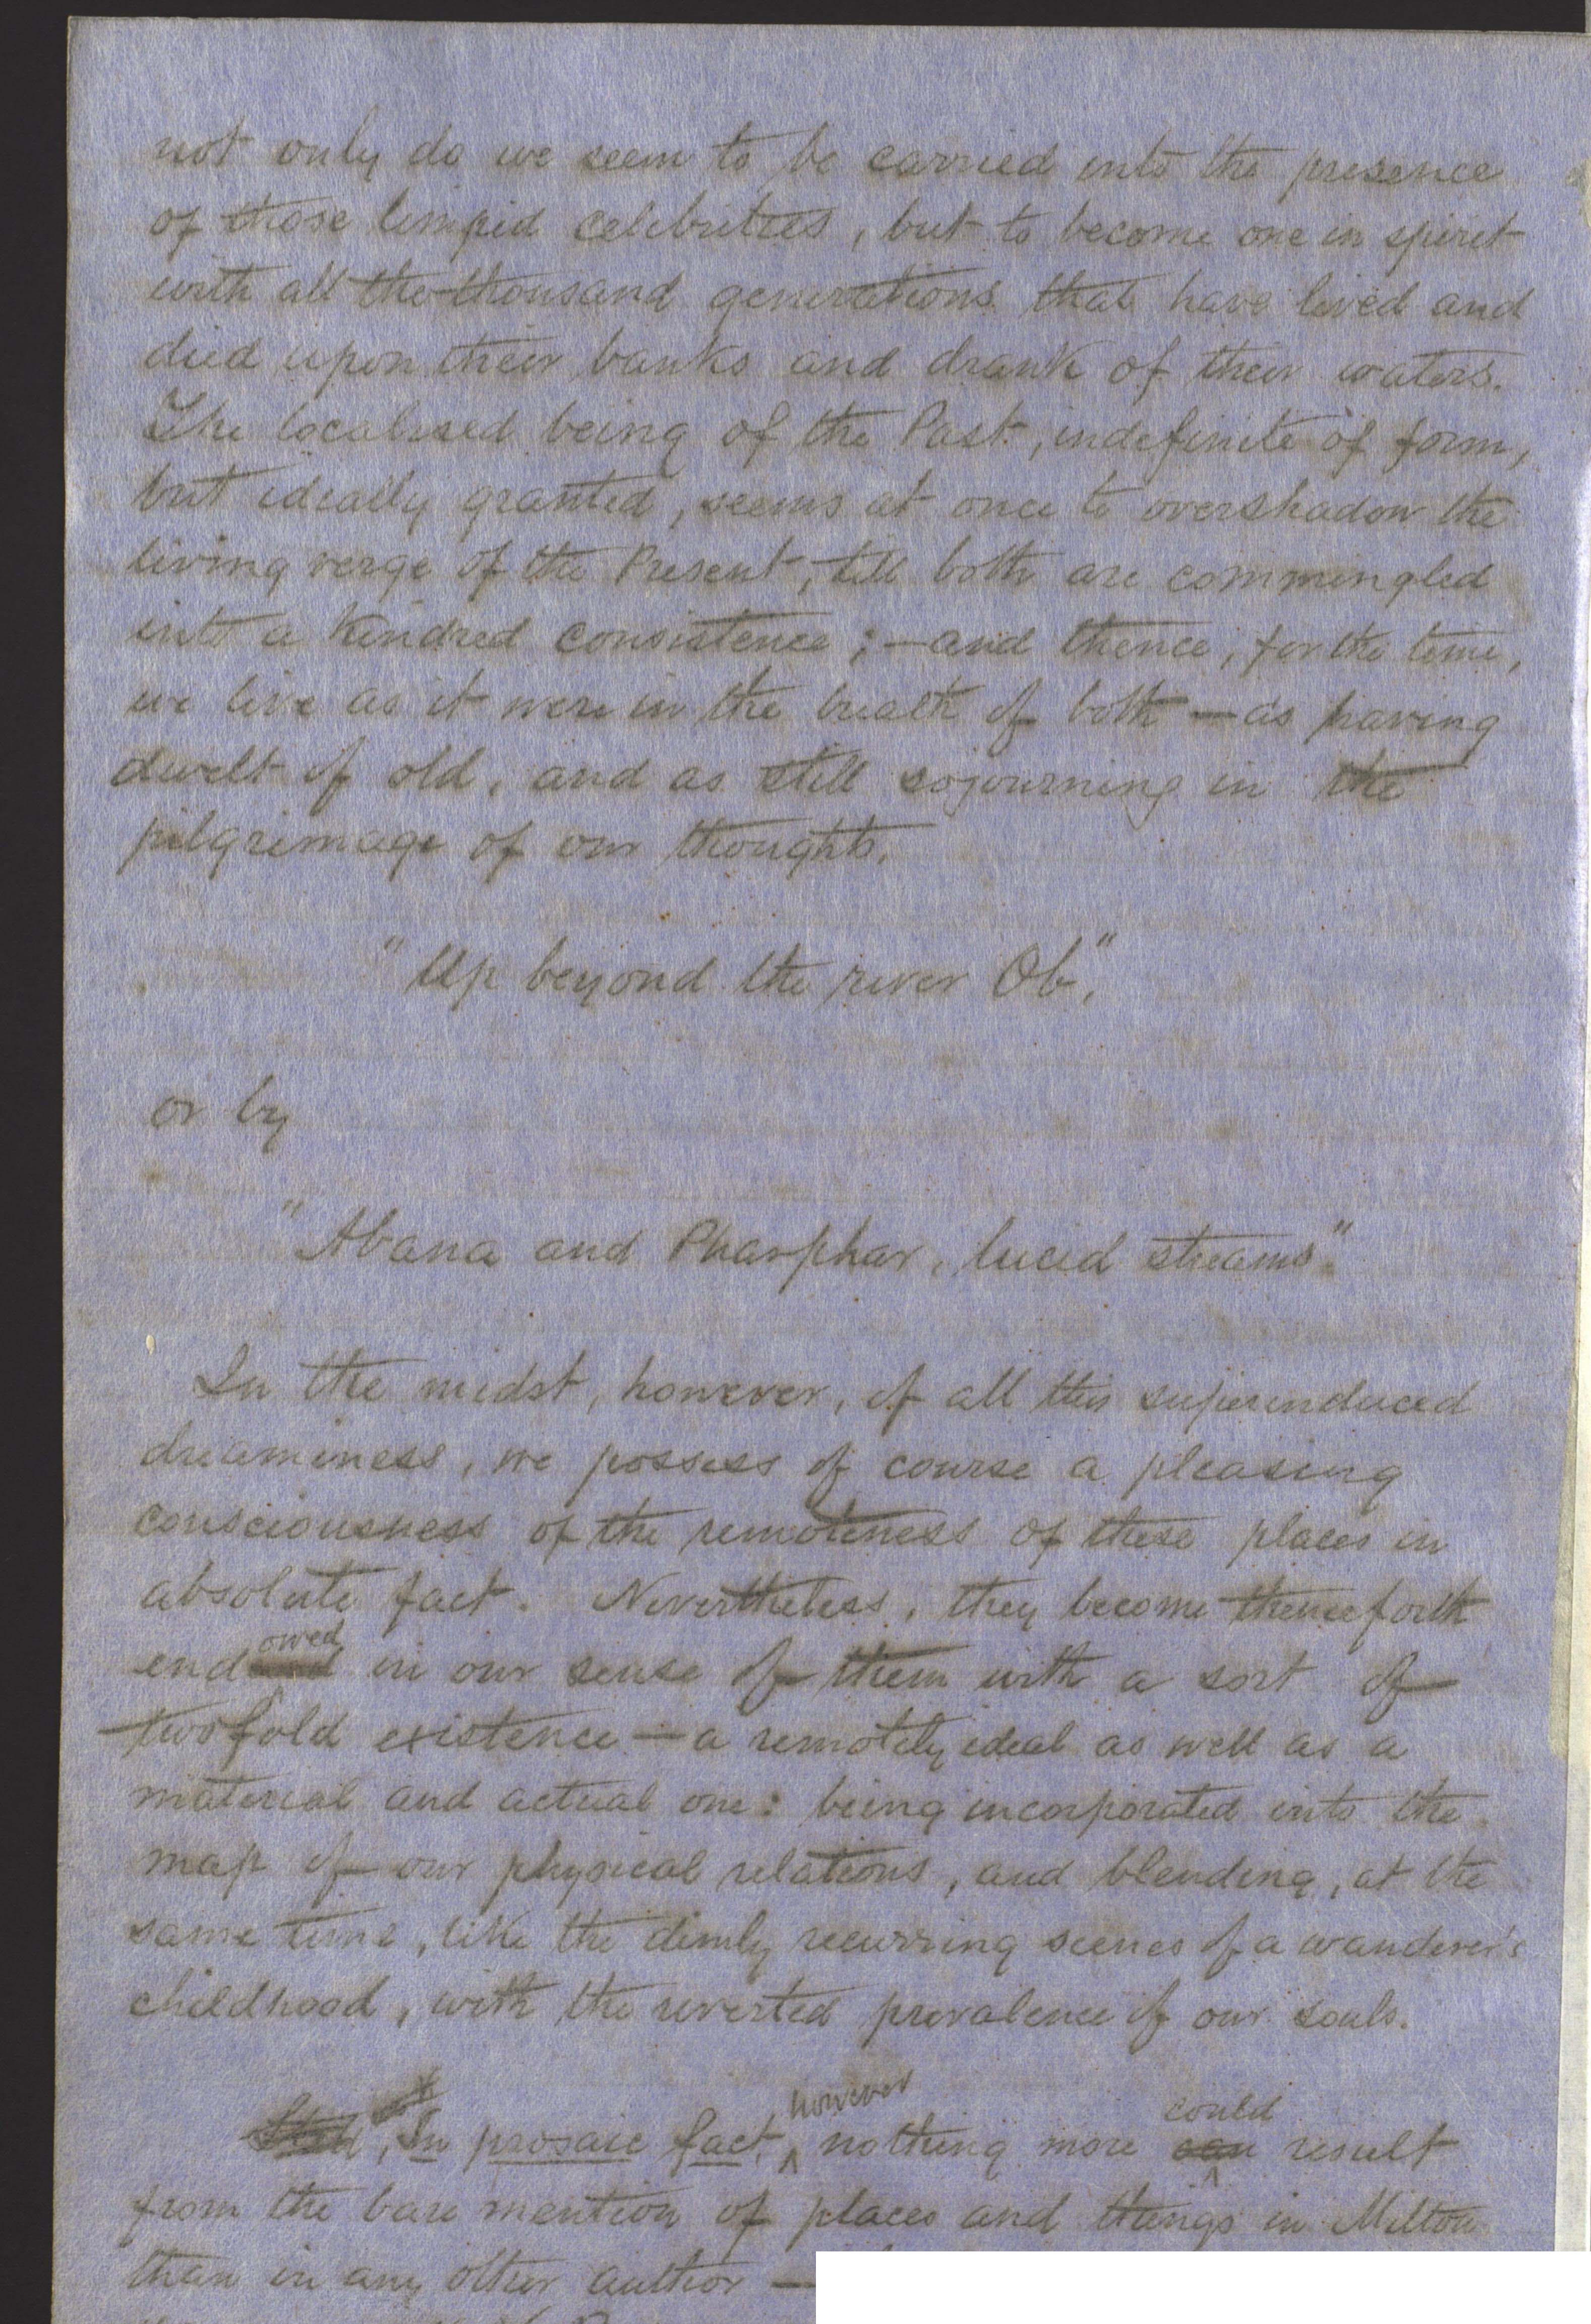 not only do we seem to be carried into the presence
of those limpid celebrities, but to become one in spirit
with all the thousand generations that have lived and
died upon their banks and drank of their waters.
The localised being of the Past, indefinite of form,
but ideally granted, seems at once to overshadow the
living verge of the Present, till both are commingled
into a kindred consistence; — and thence, for the time,
we live as it were in the breath of both — as having
dwelt of old, and as still sojourning in the
pilgrimage of our thoughts.
"Up beyond the river Ob",
or by
"Abana and Pharphar, lucid streams".
In the midst, however, of all this superinduced
dreaminess, we possess of course a pleasing
consciousness of the remoteness of these places in
absolute fact. Nevertheless, they become thenceforth
endowed in our sense of them with a sort of
twofold existence — a remotely ideal as well as a
material and actual one: being incorporated into the
map of our physical relations, and blending, at the
same time, like the dimly recurring scenes of a wanderer's
childhood, with the reverted prevalence of our souls.
In prosaic fact, however nothing more can could result
from the bare mention of places and things in Milton
than in any other author —